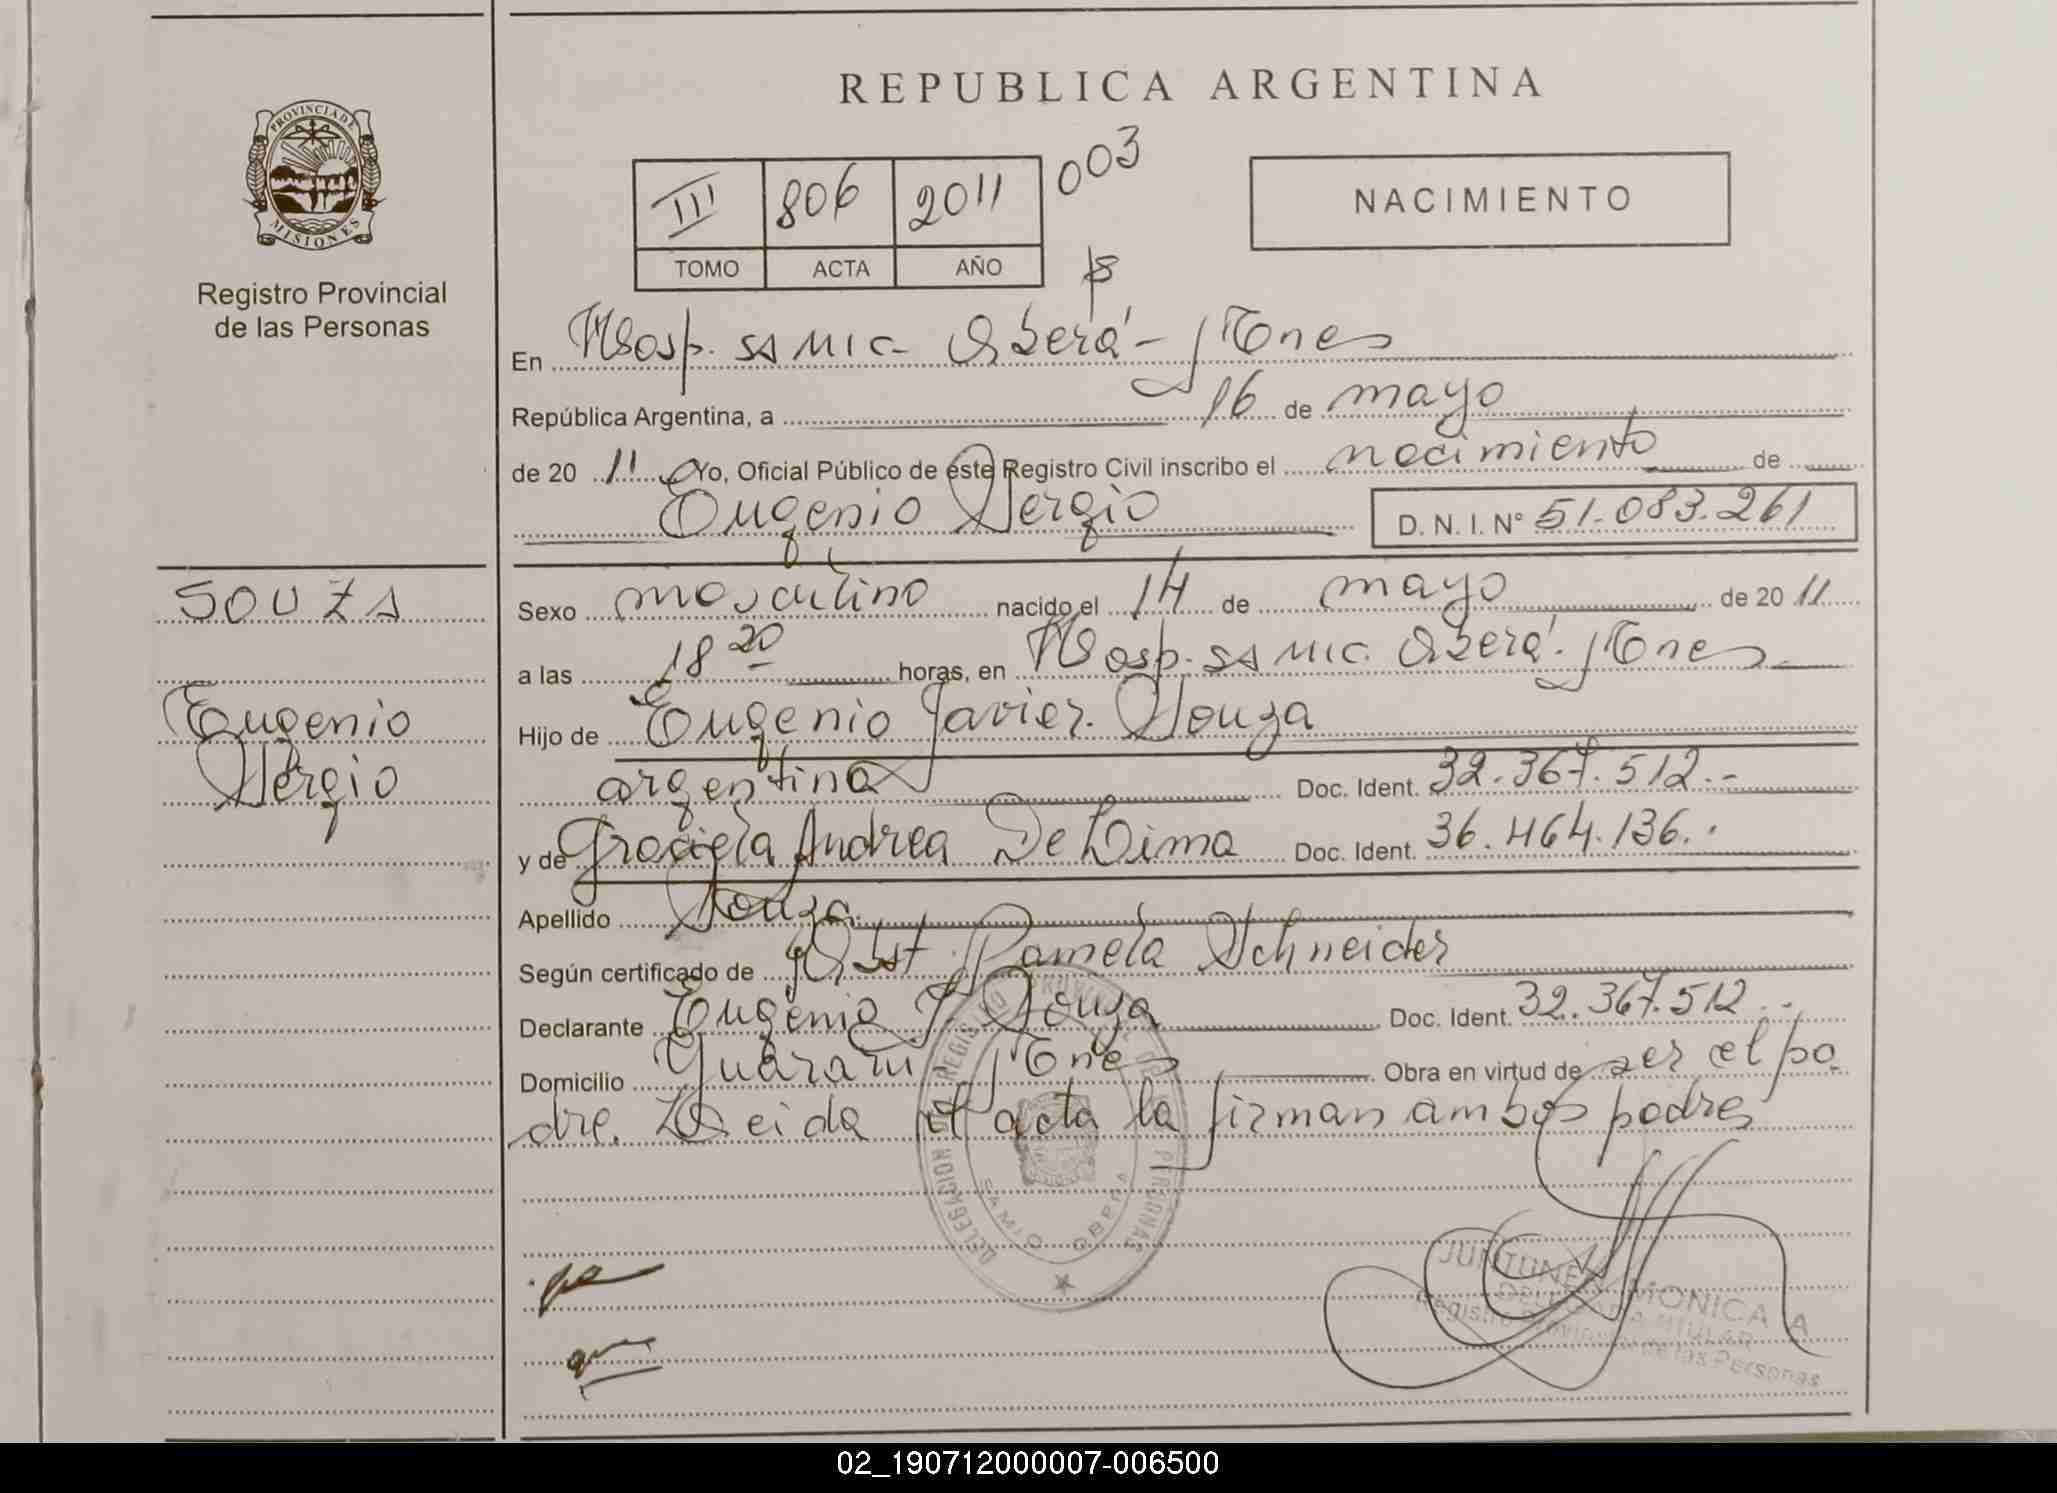 REPUBLICA ARGENTINA
PROVINCIA DE
MISIONES
Registro Provincial
de las Personas
III 806 2011 003
TOMO ACTA AÑO
NACIMIENTO
En Hosp. SAMIC Oberá - Mnes
República Argentina, a 16 de mayo
de 20 11 Yo, Oficial Público de este Registro Civil inscribo el nacimiento de
Eugenio Sergio D. N. I. N° 51.083.261
SOUZA
Eugenio
Sergio
Sexo masculino nacido el 14 de mayo de 20 11
a las 18 20 horas, en Hosp. SAMIC. Oberá. Mnes
Hijo de Eugenio Javier Souza
argentina Doc. Ident. 32.367.512.-
y de Graciela Andrea De Lima Doc. Ident. 36.464.136.
Apellido Souza
Según certificado de Obst. Pamela Schneider
Declarante Eugenio J. Souza Doc. Ident. 32.367.512.-
Domicilio Guaraní Mnes Obra en virtud de ser el pa
dre. Leida el acta la firman ambos padres
DELEGACION DEL REGISTRO PROVINCIAL DE LAS PERSONAS
SAMIC OBERA
MONICA A
DELEGADA TITULAR
Registro Provincial de las Personas
02_190712000007-006500